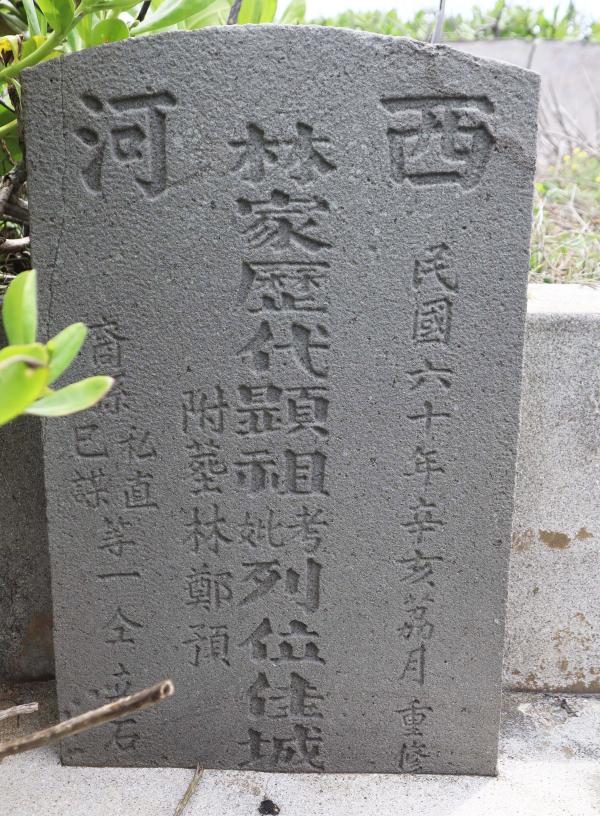 西河
民國六十年辛亥荔月重修
林家歷代顕祖考妣列位佳城
附塟林鄭預
裔孫
直
謀
等一仝立石